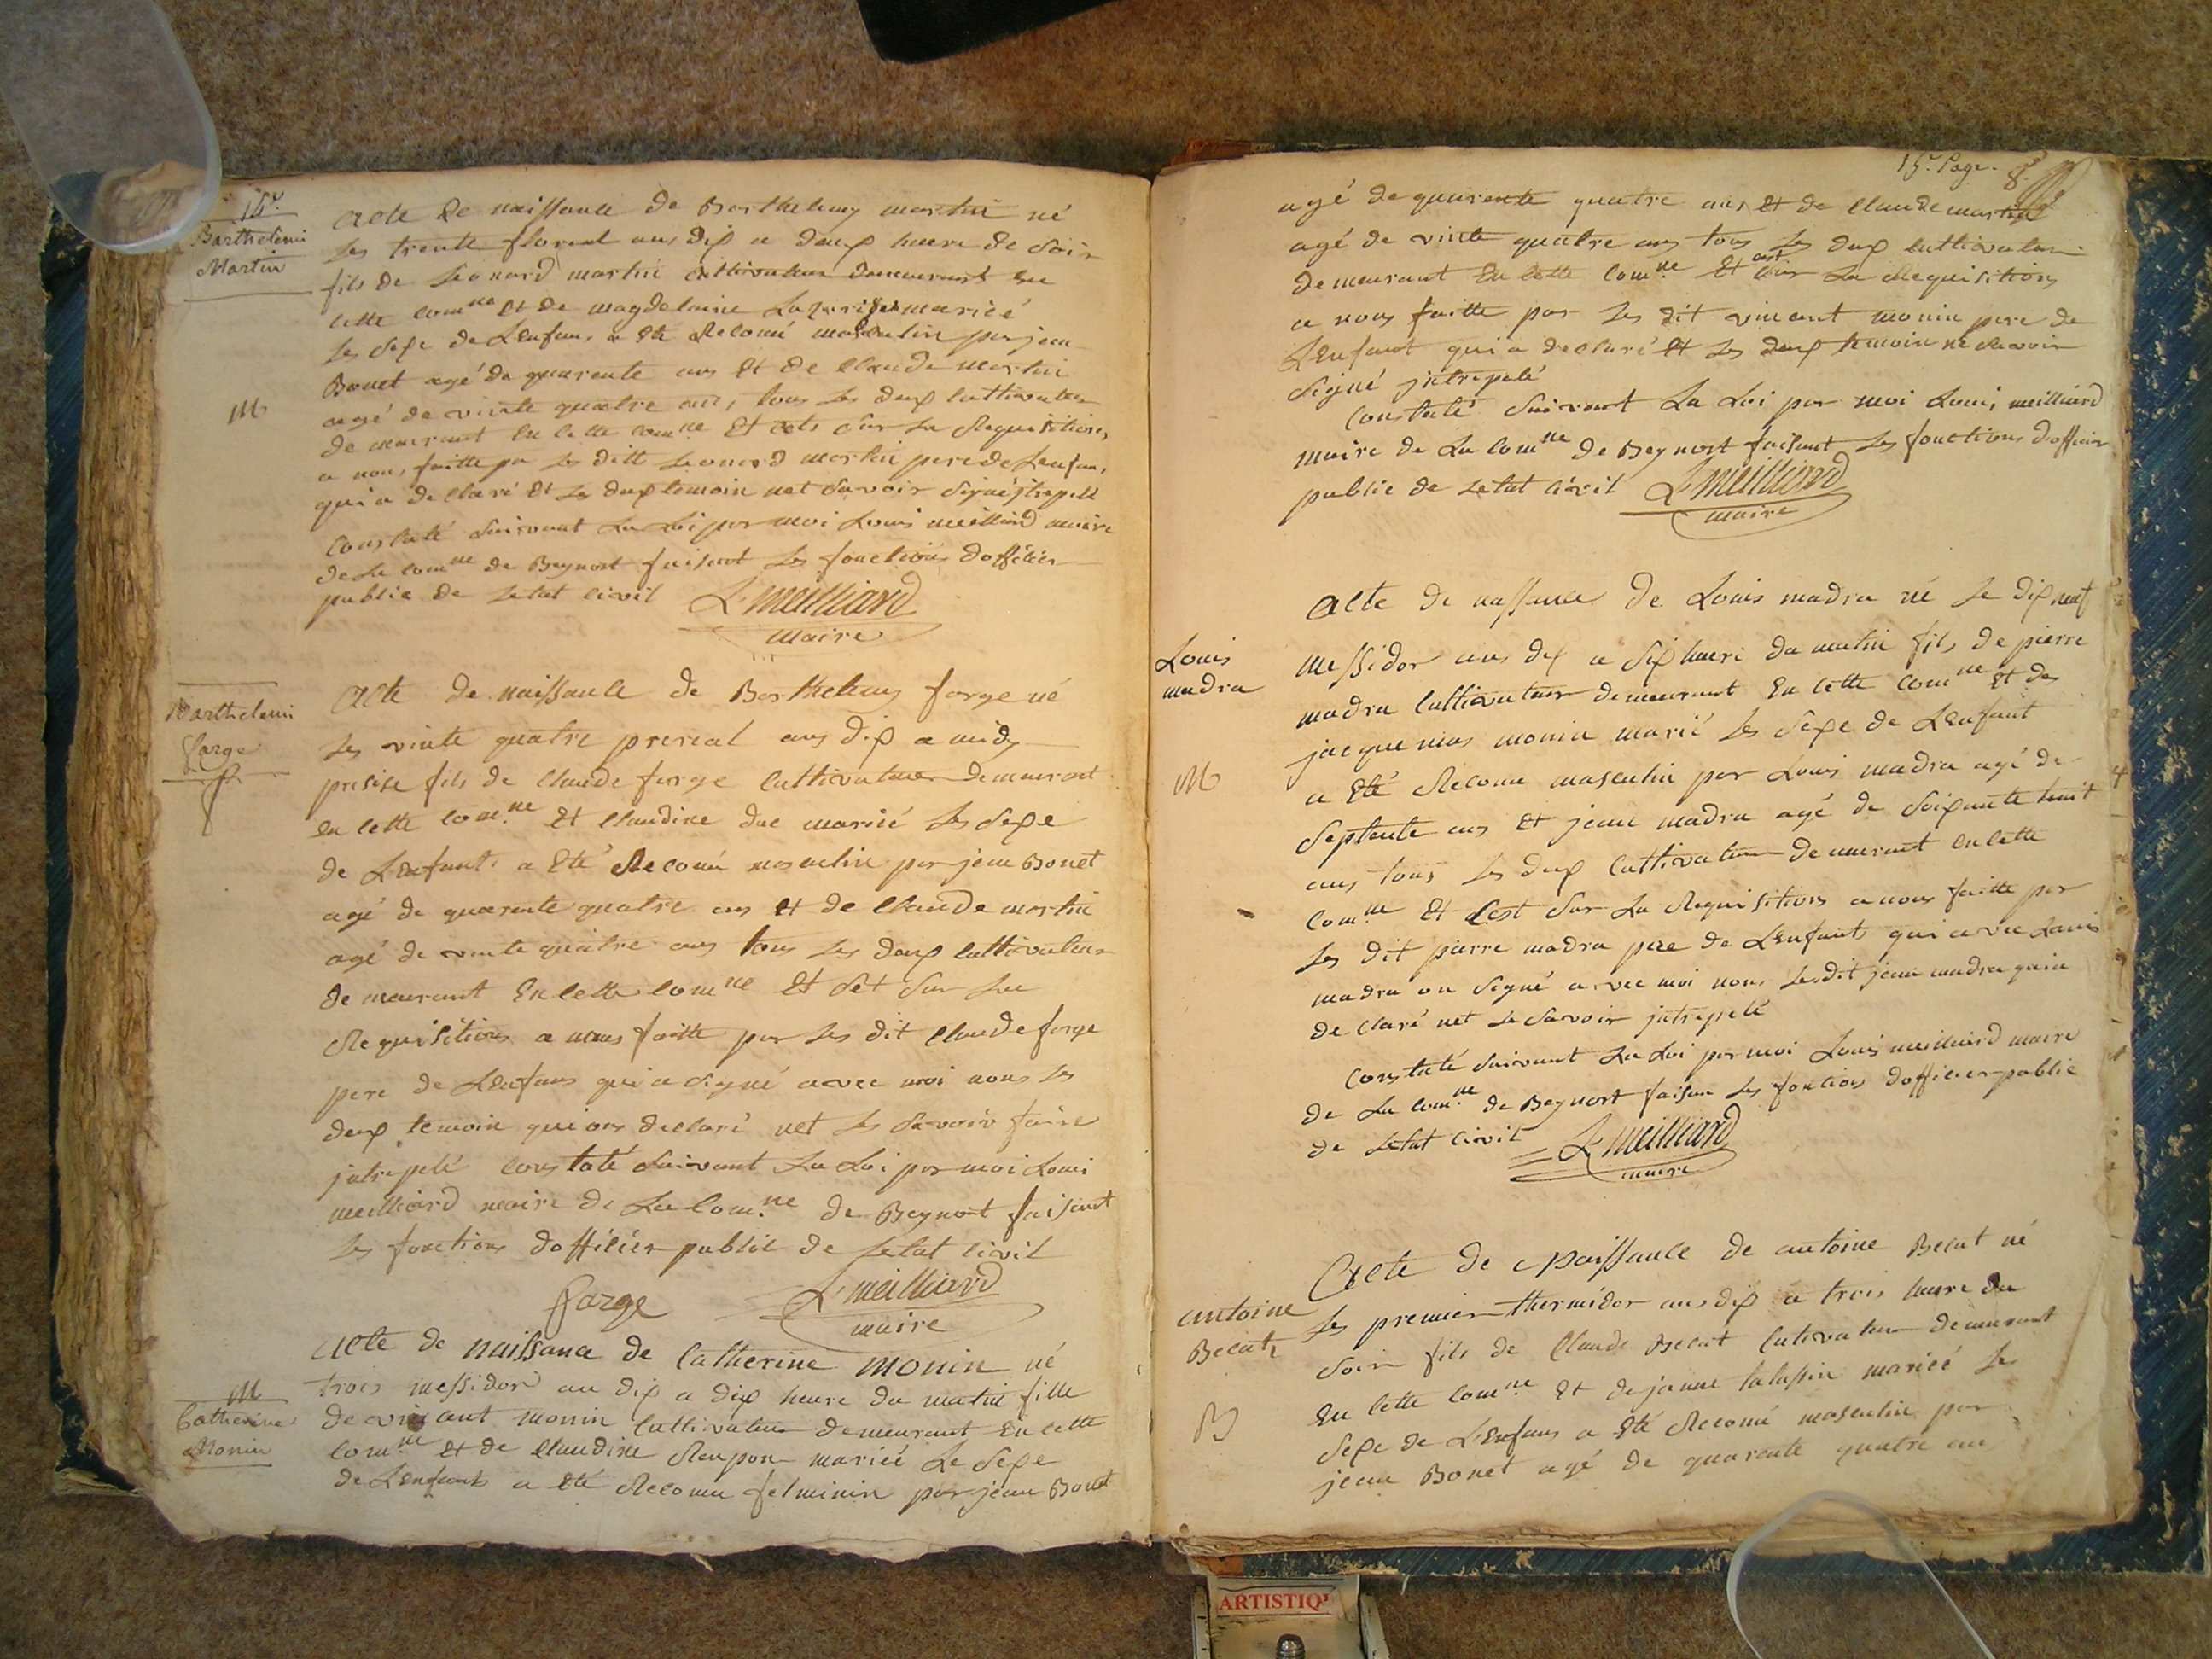 14e
Barthelemi
Martin
acte de naissance de Barthelemy martin né
les trente floreal ans dix a deux heure de soir
fils de Leonard martin cultivateur demeurant en
cette comne et de magdelaine mariéé
les sexe de Lenfans a été Reconu masculin par jean
Bonet agé de quarente ans et de Claude martin
M
agé de vinte quatre ans, tous les deux cultivateur
demeurant en cette comne et cets sur La Requisitions
a nous faitte pa les ditt Leonard martin pere de Lenfans
qui a declaré et les deux temoin net savoir signé jntrepelé
constaté suivant La Loi par moi Louis meilliard maire
de La comne de Beynost faisant les fonctions dofficier
public de Letat civil L meilliard
maire
Barthelemi
farge
acte de naissance de Barthelemy farge né
les vinte quatre prereal ans dix a midy
presise fils de Claude farge cultivateur demeurant
en cette comne et Claudine duc mariéé les sexe
de Lenfants a été Reconu masculin par jean Bonet
agé de quarente quatre ans et de Claude martin
agé de vinte quatre ans tous les deux cultivateur
demeurant en cette comne et set sur La
Requisitions a nous faitte par les dit Claude farge
pere de Lenfans qui a signé avec moi nons les
deux temoin qui ons declaré net les savoir faire
jntrepelé constaté suivant La Loi par moi Louis
meilliard maire de La comne de Beynost faisant
les fonctions dofficiér public de Letat civil
farge L meilliard
maire
M
Catherine
Monin
acte de naissance de Catherine monin né
trois messidor an dix a dix heure du matin fille
de vincant monin cultivateur demeurant en cette
comne et de Claudine mariéé Le sexe
de Lenfants a été Reconu felminin par jean Bonet
15e Page.
agé de quarente quatre ans et de Claude martin
agé de vinte quatre ans tous les deux cultivateur
demeurant en cette comne et cest sur La Requisitions
a nous faitte par les dit vincant monin pere de
Lenfant qui a declaré et les deux temoin ne savoir
signé jntrepelé
constaté suivant La Loi par moi Louis meilliard
maire de La comne de Beynost faisant les fonctions dofficier
public de Letat civil L meilliard
maire
Louis
madra
acte de naissance de Louis madra né le dix neuf
messidor ans dix a six heure du matin fils de pierre
madra cultivateur demeurant en cette comne et de
jacquemas monin marié les sexe de Lenfant
M
a été Reconu masculin par Louis madra agé de
septente ans et jean madra agé de soixante huit
ans tous les deux cultivateur demeurant en cette
comne et cest sur La Requisitions a nous faitte par
les dit pierre madra pere de Lenfant qui avec Louis
madra on signé avec moi nons les dit jean madra qui a
declaré net le savoir jntrepelé
constaté suivant La Loi par moi Louis meilliard maire
de La comne de Beynost faisan les fontions dofficier public
de Letat civil L meilliard
maire
antoine
Becat
acte de Naissance de antoine Becat né
les premier thermidor ans dix a trois heure du
soir fils de Claude Becat cutivateur demeurant
en cette comne et de janne mariéé les
B
sexe de Lenfans a été Reconu masculin par
jean Bonet agé de quarente quatre ans
ARTISTIQ'